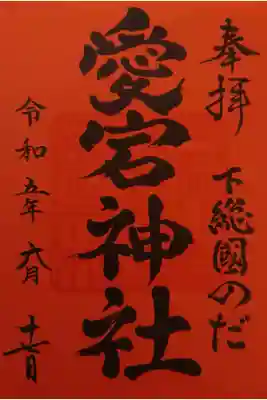 奉拝
下総國のだ
愛宕神社
令和五年六月十七日